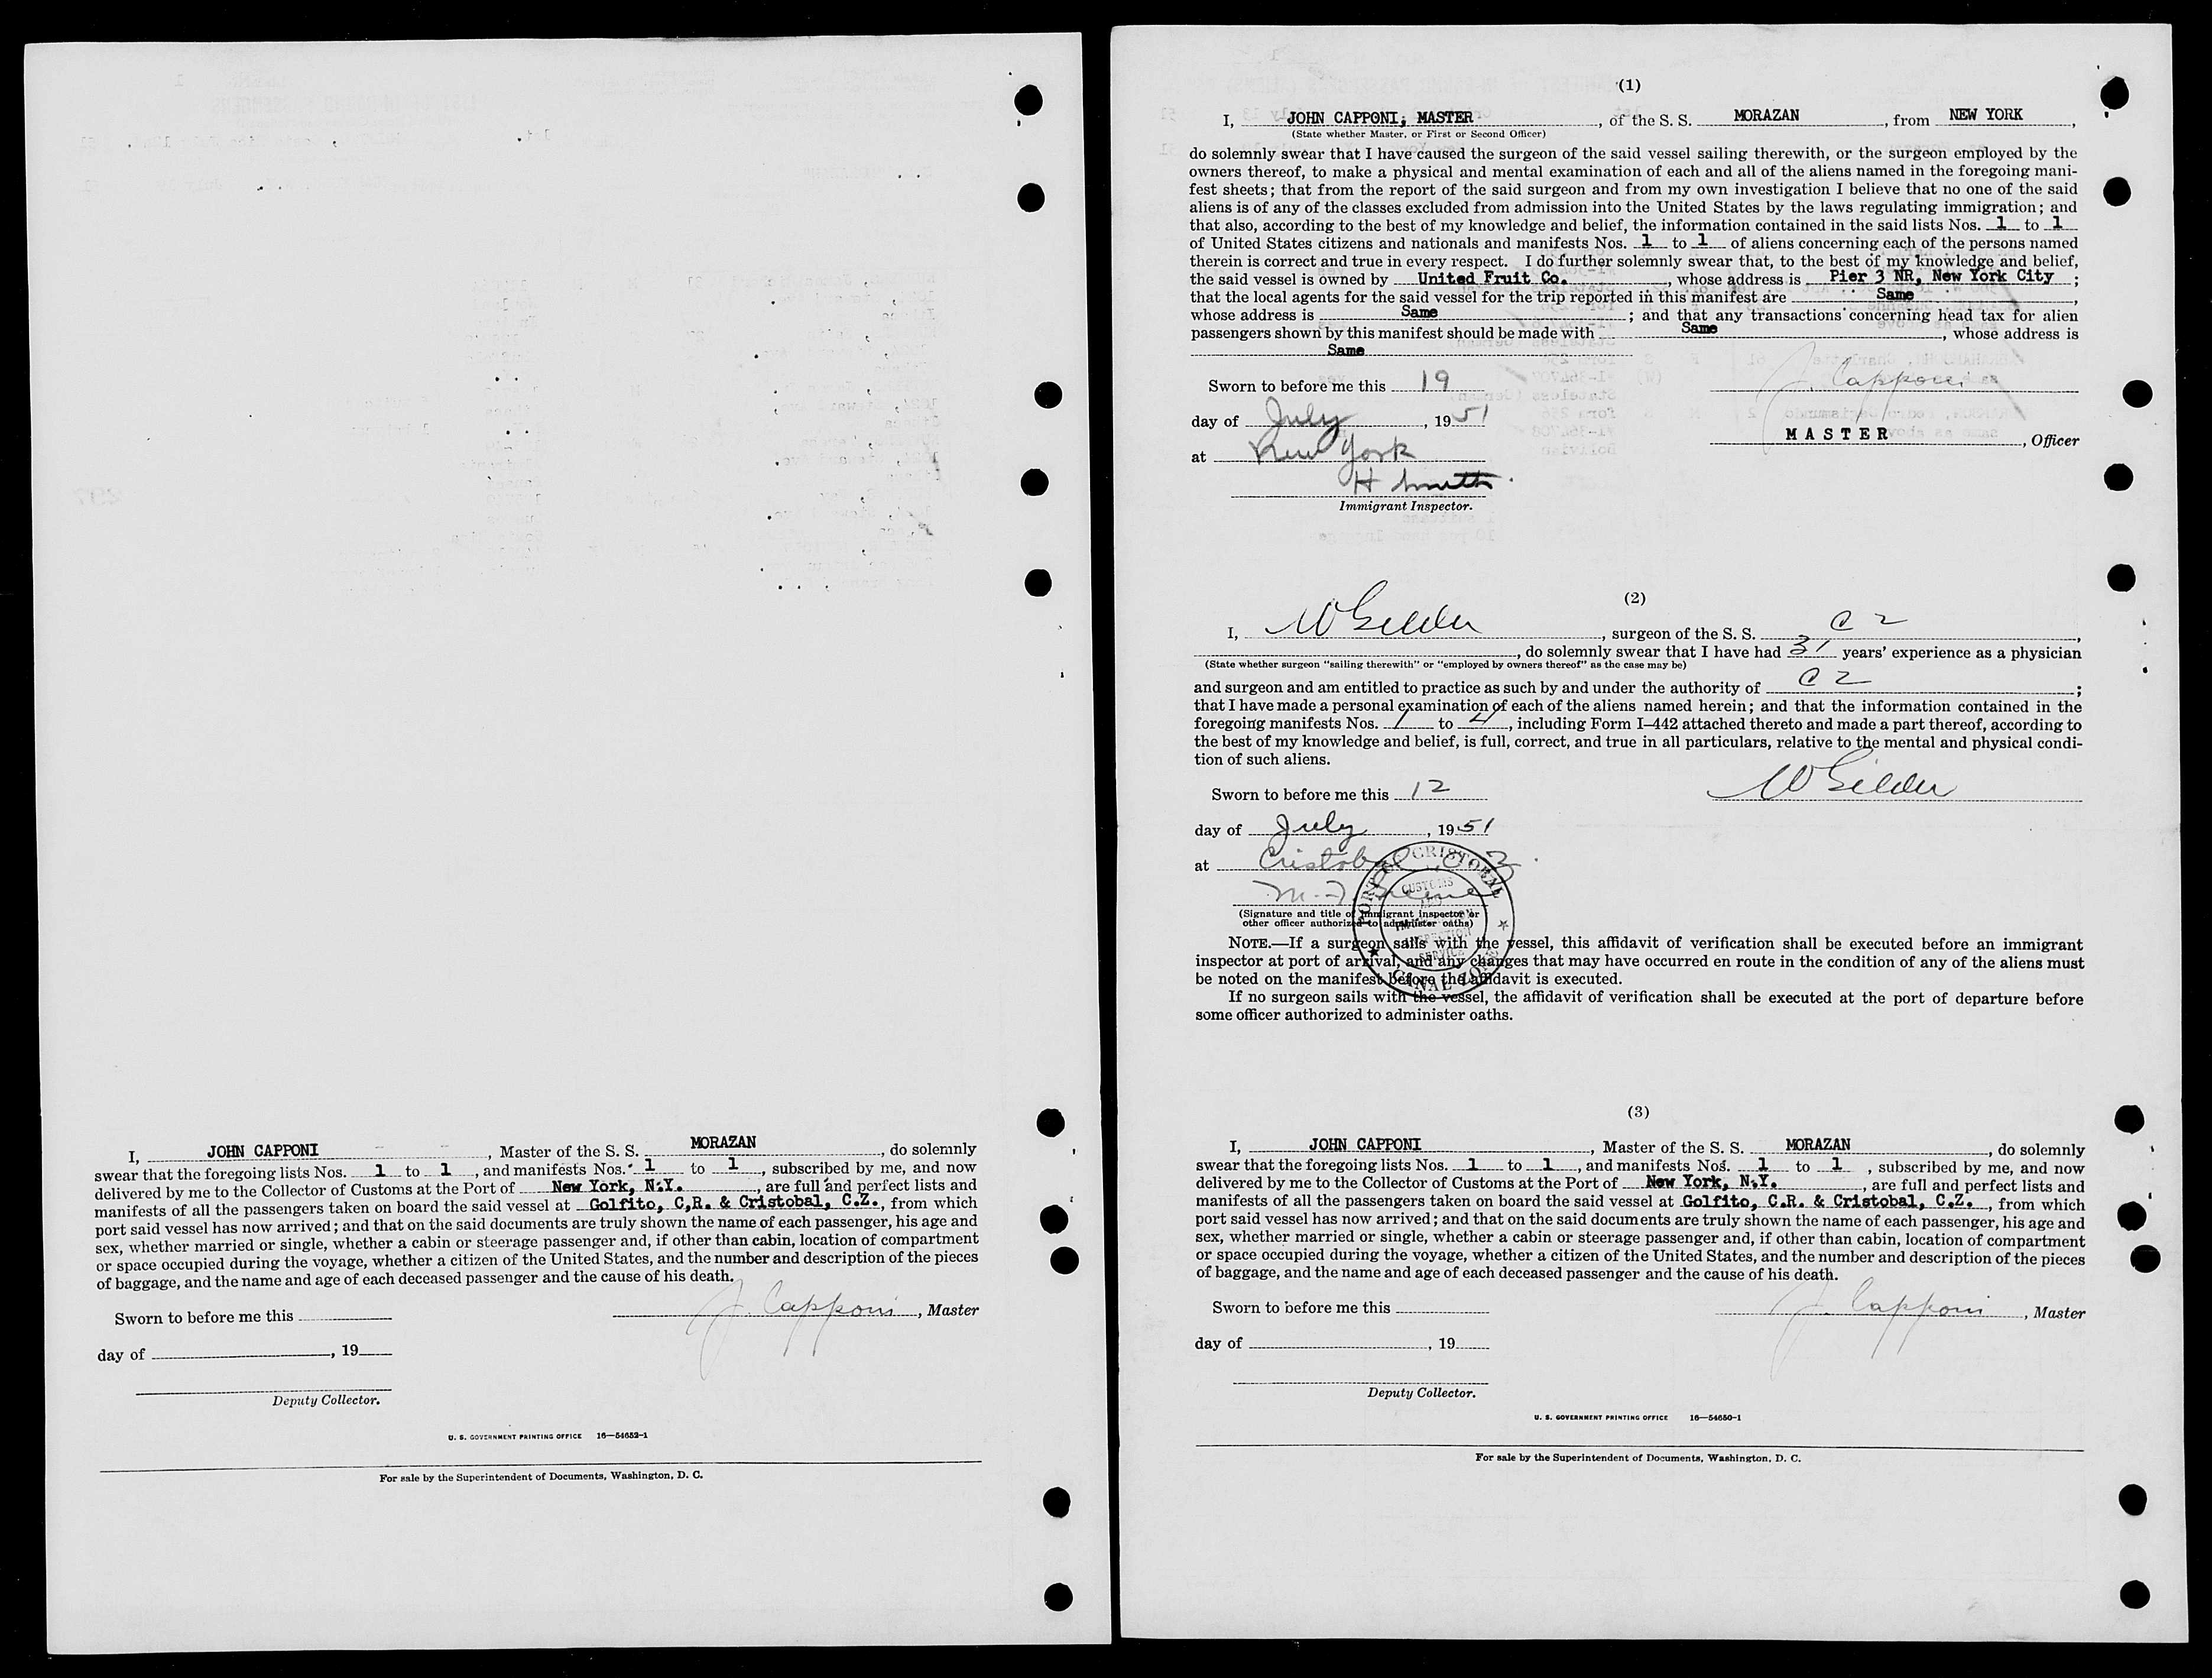 I, JOHN CAPPONI, Master of the S. S. MORAZAN, do solemnly
swear that the foregoing lists Nos. 1 to 1, and manifests Nos. 1 to 1, subscribed by me, and now
delivered by me to the Collector of Customs at the Port of New York, N.Y., are full and perfect lists and
manifests of all the passengers taken on board the said vessel at Golfito, C,R. & Cristobal, C.Z., from which
port said vessel has now arrived; and that on the said documents are truly shown the name of each passenger, his age and
sex, whether married or single, whether a cabin or steerage passenger and, if other than cabin, location of compartment
or space occupied during the voyage, whether a citizen of the United States, and the number and description of the pieces
of baggage, and the name and age of each deceased passenger and the cause of his death.
Sworn to before me this
J. Capponi, Master
day of , 19
Deputy Collector.
U. S. GOVERNMENT PRINTING OFFICE 16—54652-1
For sale by the Superintendent of Documents, Washington, D. C.
(1)
I, JOHN CAPPONI, MASTER, of the S. S. MORAZAN, from NEW YORK,
(State whether Master, or First or Second Officer)
do solemnly swear that I have caused the surgeon of the said vessel sailing therewith, or the surgeon employed by the
owners thereof, to make a physical and mental examination of each and all of the aliens named in the foregoing mani-
fest sheets; that from the report of the said surgeon and from my own investigation I believe that no one of the said
aliens is of any of the classes excluded from admission into the United States by the laws regulating immigration; and
that also, according to the best of my knowledge and belief, the information contained in the said lists Nos. 1 to 1
of United States citizens and nationals and manifests Nos. 1 to 1 of aliens concerning each of the persons named
therein is correct and true in every respect. I do further solemnly swear that, to the best of my knowledge and belief,
the said vessel is owned by United Fruit Co., whose address is Pier 3 NR, New York City;
that the local agents for the said vessel for the trip reported in this manifest are Same,
whose address is Same; and that any transactions concerning head tax for alien
passengers shown by this manifest should be made with Same, whose address is
Same
Sworn to before me this 19
J. Capponi
day of July, 1951
MASTER, Officer
at New York
H Smith
Immigrant Inspector.
(2)
I, W Gilder, surgeon of the S. S. C Z,
, do solemnly swear that I have had 31 years' experience as a physician
(State whether surgeon "sailing therewith" or "employed by owners thereof" as the case may be)
and surgeon and am entitled to practice as such by and under the authority of C Z;
that I have made a personal examination of each of the aliens named herein; and that the information contained in the
foregoing manifests Nos. 1 to 4, including Form I-442 attached thereto and made a part thereof, according to
the best of my knowledge and belief, is full, correct, and true in all particulars, relative to the mental and physical condi-
tion of such aliens.
Sworn to before me this 12
W Gilder
day of July, 1951
at Cristobal C Z
PORT OF CRISTOBAL
CUSTOMS
SERVICE
CANAL ZONE
(Signature and title of immigrant inspector or
other officer authorized to administer oaths)
NOTE.—If a surgeon sails with the vessel, this affidavit of verification shall be executed before an immigrant
inspector at port of arrival, and any changes that may have occurred en route in the condition of any of the aliens must
be noted on the manifest before the affidavit is executed.
If no surgeon sails with the vessel, the affidavit of verification shall be executed at the port of departure before
some officer authorized to administer oaths.
(3)
I, JOHN CAPPONI, Master of the S. S. MORAZAN, do solemnly
swear that the foregoing lists Nos. 1 to 1, and manifests Nos. 1 to 1, subscribed by me, and now
delivered by me to the Collector of Customs at the Port of New York, N.Y., are full and perfect lists and
manifests of all the passengers taken on board the said vessel at Golfito, C.R. & Cristobal, C.Z., from which
port said vessel has now arrived; and that on the said documents are truly shown the name of each passenger, his age and
sex, whether married or single, whether a cabin or steerage passenger and, if other than cabin, location of compartment
or space occupied during the voyage, whether a citizen of the United States, and the number and description of the pieces
of baggage, and the name and age of each deceased passenger and the cause of his death.
Sworn to before me this
J. Capponi, Master
day of , 19
Deputy Collector.
U. S. GOVERNMENT PRINTING OFFICE 16—54650-1
For sale by the Superintendent of Documents, Washington, D. C.